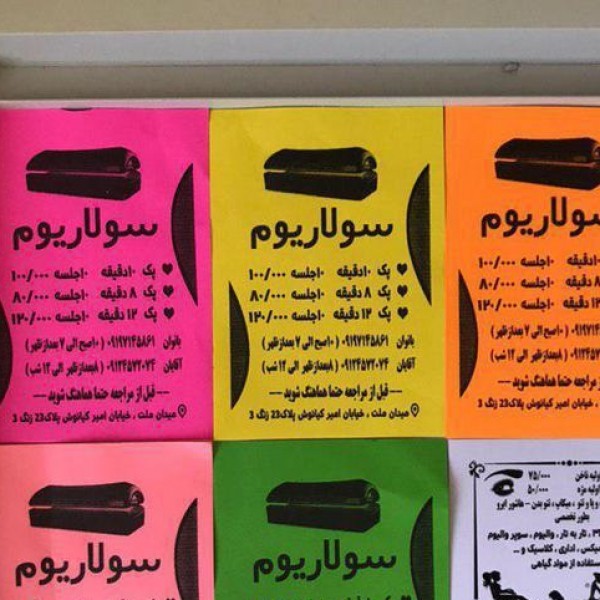 سولاریوم
پک ۱۰دقیقه ۱۰جلسه ۱۰۰/۰۰۰
پک ۸ دقیقه ۱۰جلسه ۸۰/۰۰۰
پک ۱۲ دقیقه ۱۰جلسه ۱۲۰/۰۰۰
بانوان ۰۹۱۹۷۱۴۵۸۶۱ (۱۰صبح الی ۷ بعدازظهر)
آقایان ۰۹۱۲۴۵۷۲۰۷۴ (۸بعدازظهر الی ۱۲ شب)
---قبل از مراجعه حتما هماهنگ شوید---
میدان ملت ، خیابان امیر کیانوش پلاک23 زنگ 3
سولاریوم
پک ۱۰دقیقه ۱۰جلسه ۱۰۰/۰۰۰
پک ۸ دقیقه ۱۰جلسه ۸۰/۰۰۰
پک ۱۲ دقیقه ۱۰جلسه ۱۲۰/۰۰۰
بانوان ۰۹۱۹۷۱۴۵۸۶۱ (۱۰صبح الی ۷ بعدازظهر)
آقایان ۰۹۱۲۴۵۷۲۰۷۴ (۸بعدازظهر الی ۱۲ شب)
---قبل از مراجعه حتما هماهنگ شوید---
میدان ملت ، خیابان امیر کیانوش پلاک23 زنگ 3
سولاریوم
۱۰دقیقه ۱۰جلسه ۱۰۰/۰۰۰
۸ دقیقه ۱۰جلسه ۸۰/۰۰۰
۱۲ دقیقه ۱۰جلسه ۱۲۰/۰۰۰
(۱۰صبح الی ۷ بعدازظهر)
(۸بعدازظهر الی ۱۲ شب)
از مراجعه حتما هماهنگ شوید---
، خیابان امیر کیانوش پلاک23 زنگ 3
سولاریوم
سولاریوم
ناخن ۷۵/۰۰۰
مژه ۵۰/۰۰۰
و پا و تتو ، میکاپ ، تتو بدن - هاشور ابرو
بطور تخصصی
، تار به تار ، والیوم ، سوپر والیوم
میکس ، اداری ، کلاسیک و ...
استفاده از مواد گیاهی